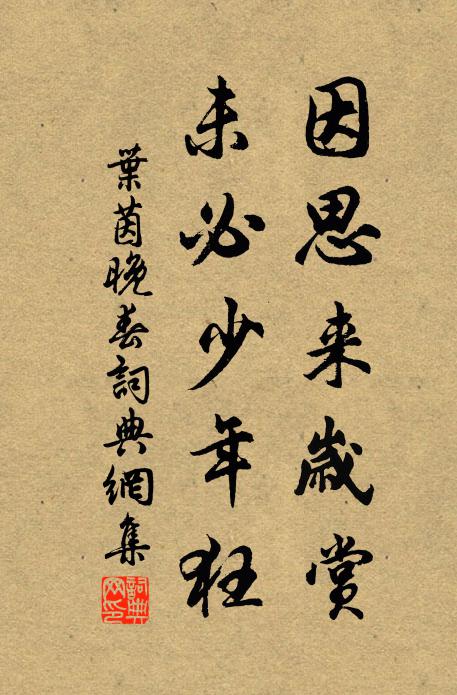 因思来歲賞
未必少年狂
葉茵晚春詞典網集
詞典网印